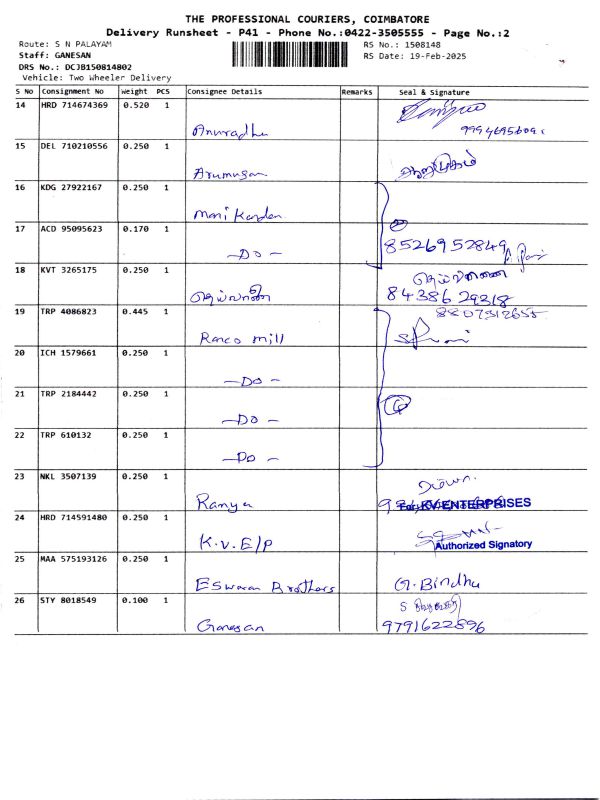 THE PROFESSIONAL COURIERS, COIMBATORE
Delivery Runsheet - P41 - Phone No.:0422-3505555 - Page No.:2
Route: S N PALAYAM RS No.: 1508148
Staff: GANESAN RS Date: 19-Feb-2025
DRS No.: DCJB150814802
Vehicle: Two Wheeler Delivery
S No Consignment No Weight PCS Consignee Details Remarks Seal & Signature
14 HRD 714674369 0.520 1
Anuradha
15 DEL 710210556 0.250 1
Arumugam ஆறுமுகம்
16 KDG 27922167 0.250 1
Manikandan
17 ACD 95095623 0.170 1
-Do- 8526952849
18 KVT 3265175 0.250 1
84386 29318
19 TRP 4086823 0.445 1 8807312655
Ranco mill
20 ICH 1579661 0.250 1
-Do-
21 TRP 2184442 0.250 1
-Do-
22 TRP 610132 0.250 1
-Do-
23 NKL 3507139 0.250 1
Ramya For KV ENTERPRISES
24 HRD 714591480 0.250 1
K.V.E/P Authorized Signatory
25 MAA 575193126 0.250 1
Eswaran Brothers G.Bindhu
26 STY 8018549 0.100 1
Ganesan 9791622896